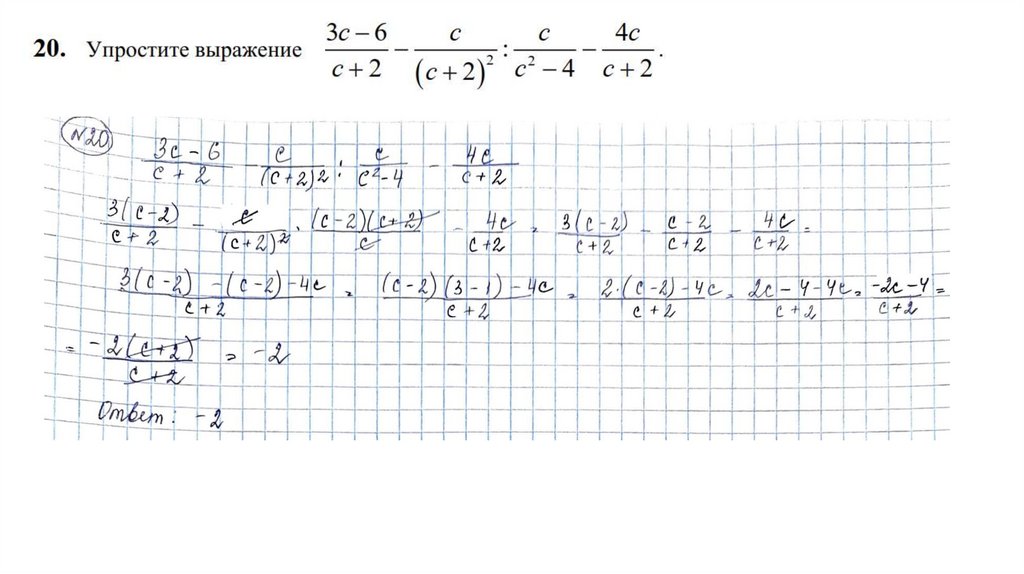 20. Упростите выражение (3c − 6)/(c + 2) − c/(c + 2)² : c/(c² − 4) − 4c/(c + 2).
№20
(3c − 6)/(c + 2) − c/(c+2)² : c/(c² − 4) − 4c/(c + 2)
3(c−2)/(c+2) − c/(c+2)² · (c−2)(c+2)/c − 4c/(c+2) = 3(c−2)/(c+2) − (c−2)/(c+2) − 4c/(c+2) =
(3(c−2) − (c−2) − 4c)/(c+2) = ((c−2)(3−1) − 4c)/(c+2) = (2·(c−2) − 4c)/(c+2) = (2c − 4 − 4c)/(c+2) = (−2c − 4)/(c+2) =
= −2(c+2)/(c+2) = −2
Ответ: −2